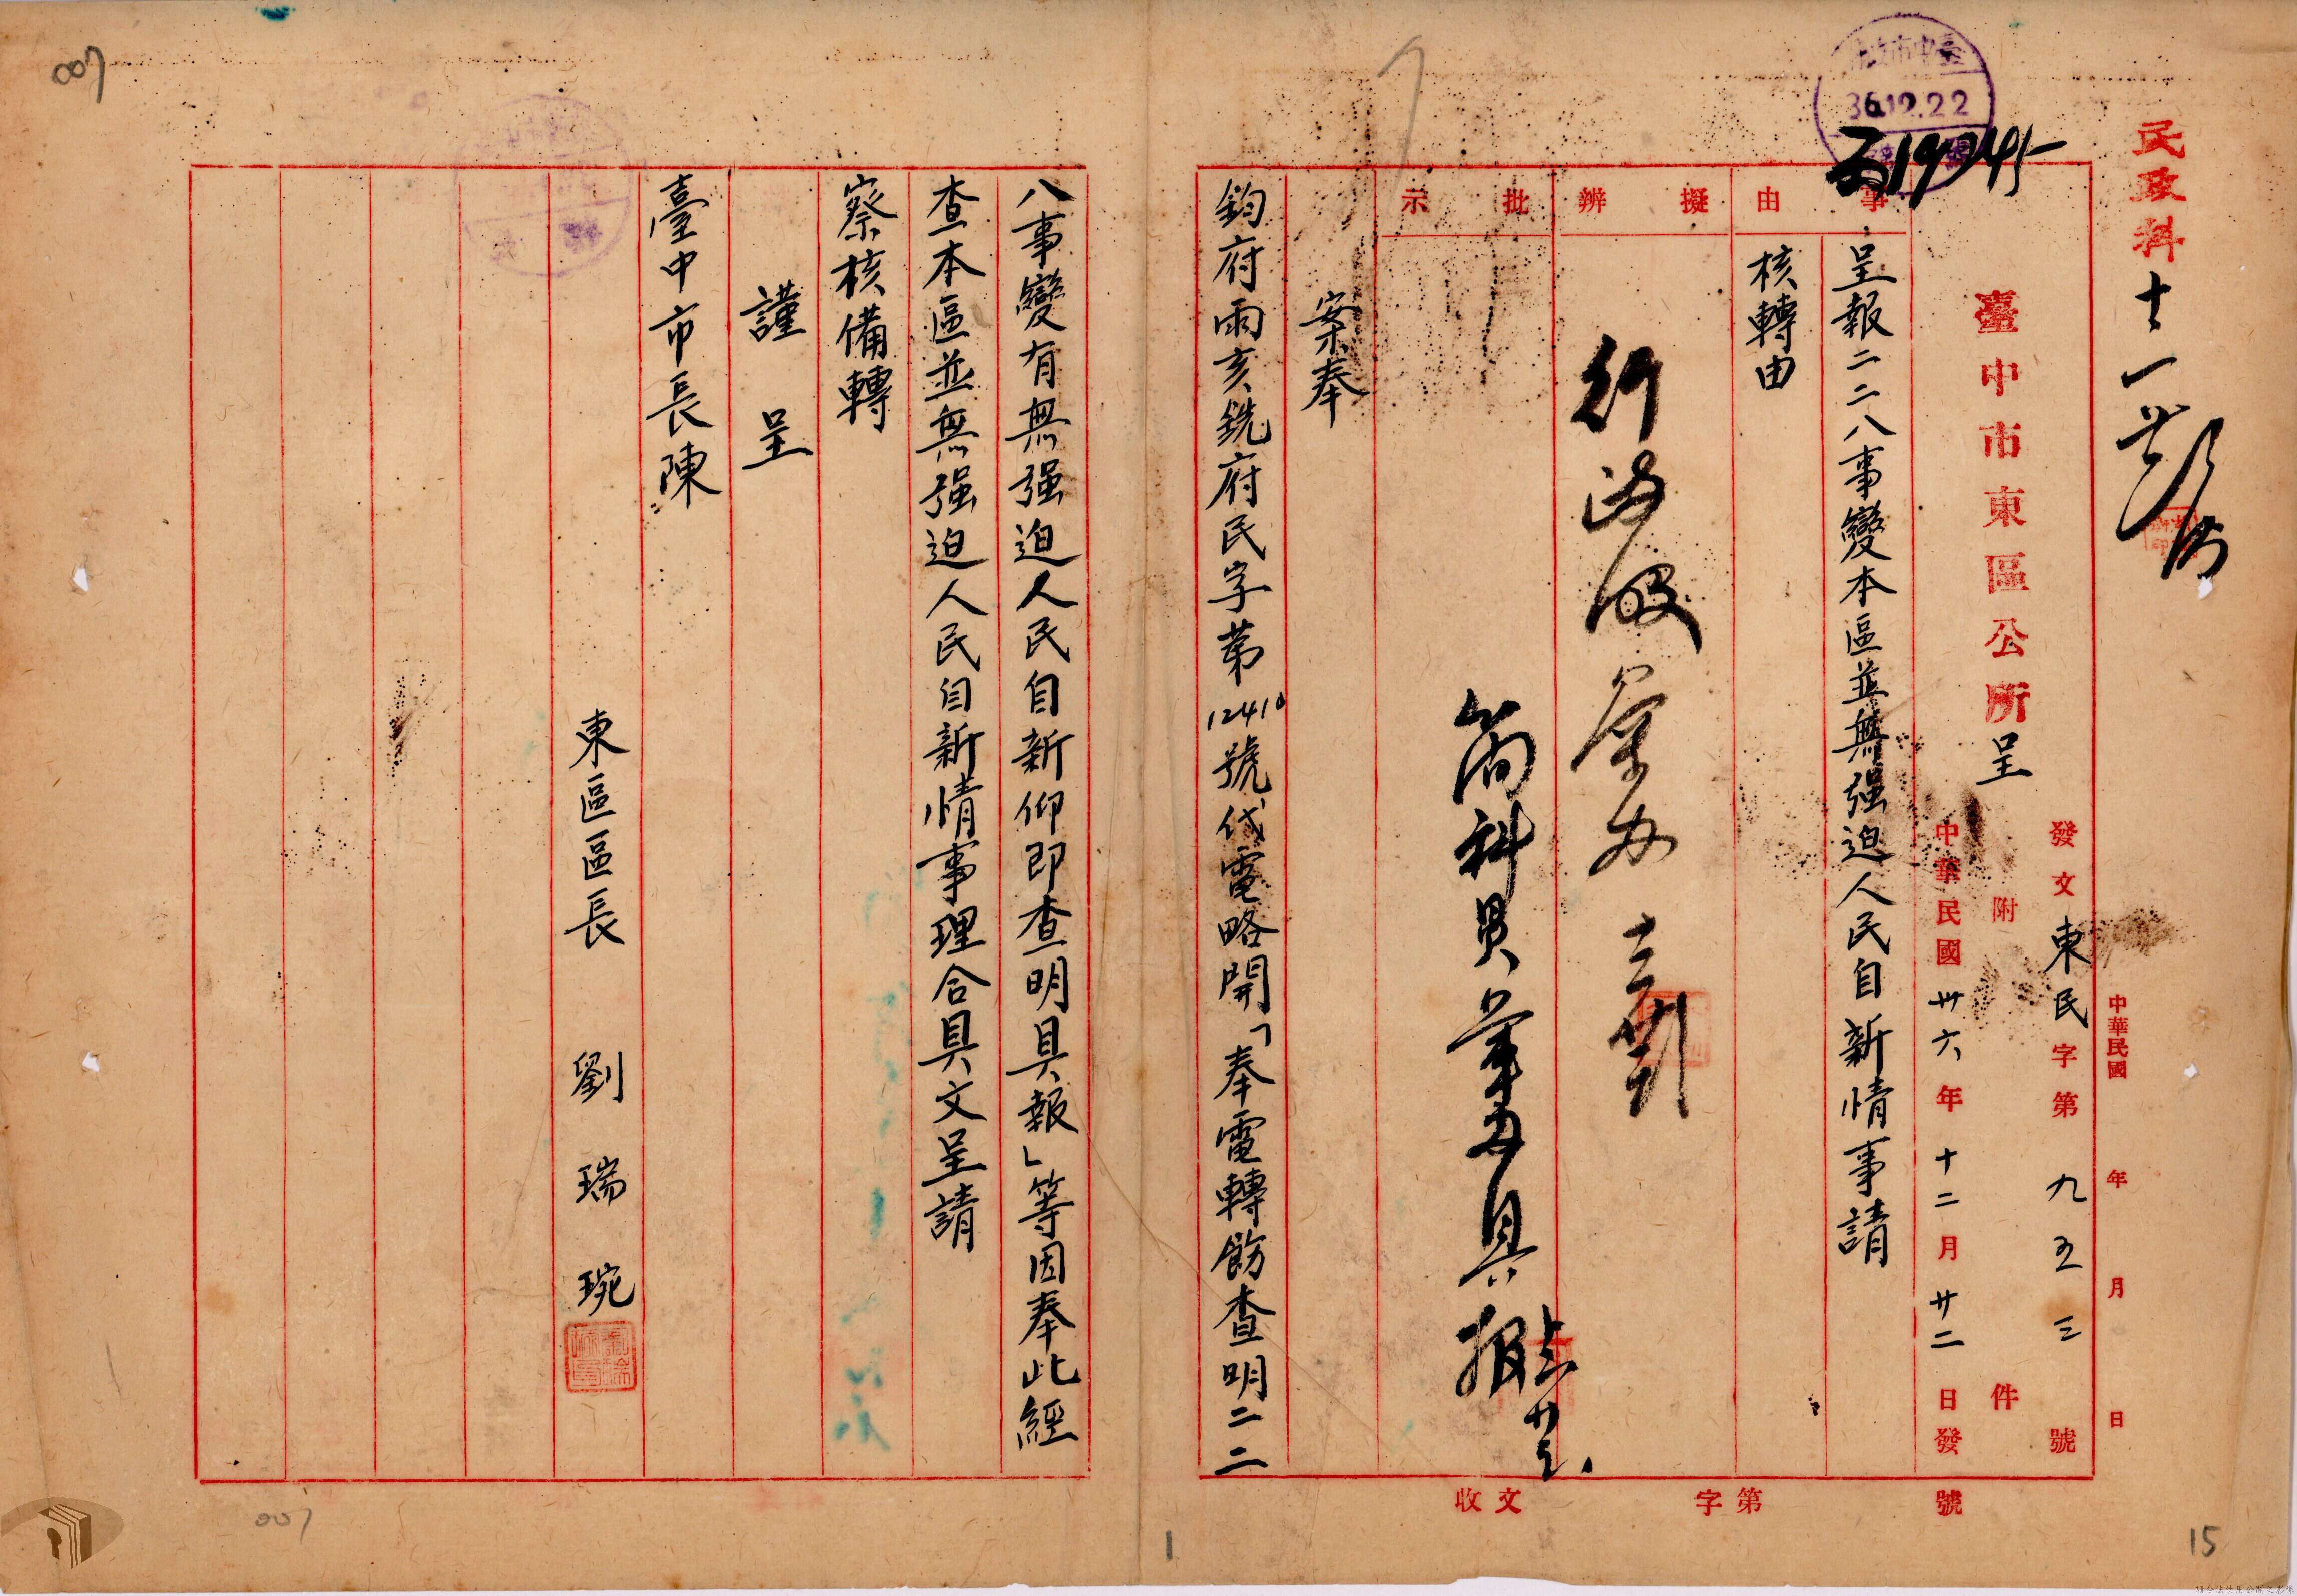 民政科
臺中市東區公所呈
發文東民字第九五三號
附件
中華民國卅六年十二月廿二日發
中華民國 年 月 日
36.12.22
事由
呈報二二八事變本區並無强迫人民自新情事請
核轉由
擬辦
批示
案奉
鈞府雨亥銑府民字第12410號代電略開「奉電轉飭查明二二
八事變有無强迫人民自新仰即查明具報」等因奉此經
查本區並無强迫人民自新情事理合具文呈請
察核備轉
謹呈
臺中市長陳
東區區長 劉瑞琬
收文 字第 號
007
007
1
15